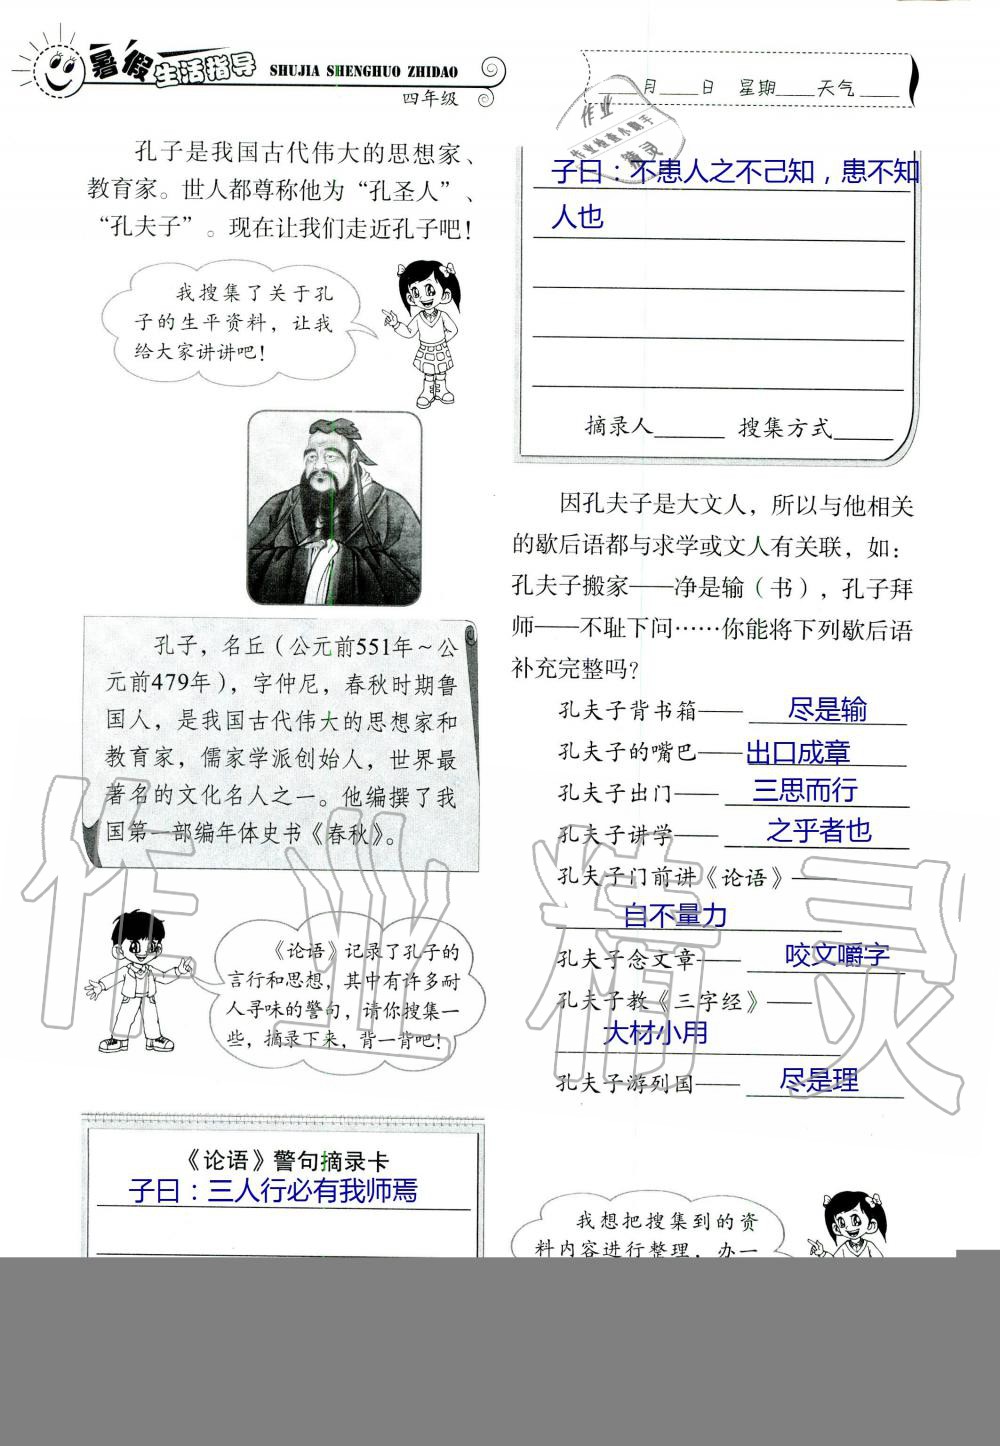 暑假生活指导
SHUJIA SHENGHUO ZHIDAO
四年级
月____日 星期____天气____
孔子是我国古代伟大的思想家、
教育家。世人都尊称他为“孔圣人”、
“孔夫子”。现在让我们走近孔子吧！
我搜集了关于孔
子的生平资料，让我
给大家讲讲吧！
孔子，名丘（公元前551年～公
元前479年），字仲尼，春秋时期鲁
国人，是我国古代伟大的思想家和
教育家，儒家学派创始人，世界最
著名的文化名人之一。他编撰了我
国第一部编年体史书《春秋》。
《论语》记录了孔子的
言行和思想，其中有许多耐
人寻味的警句，请你搜集一
些，摘录下来，背一背吧！
《论语》警句摘录卡
子曰：三人行必有我师焉
作业
作业检查小助手
精灵
子曰：不患人之不己知，患不知
人也
摘录人______ 搜集方式______
因孔夫子是大文人，所以与他相关
的歇后语都与求学或文人有关联，如：
孔夫子搬家——净是输（书），孔子拜
师——不耻下问……你能将下列歇后语
补充完整吗？
孔夫子背书箱—— 尽是输
孔夫子的嘴巴—— 出口成章
孔夫子出门—— 三思而行
孔夫子讲学—— 之乎者也
孔夫子门前讲《论语》——
自不量力
孔夫子念文章—— 咬文嚼字
孔夫子教《三字经》——
大材小用
孔夫子游列国—— 尽是理
我想把搜集到的资
料内容进行整理，办一
作业精灵